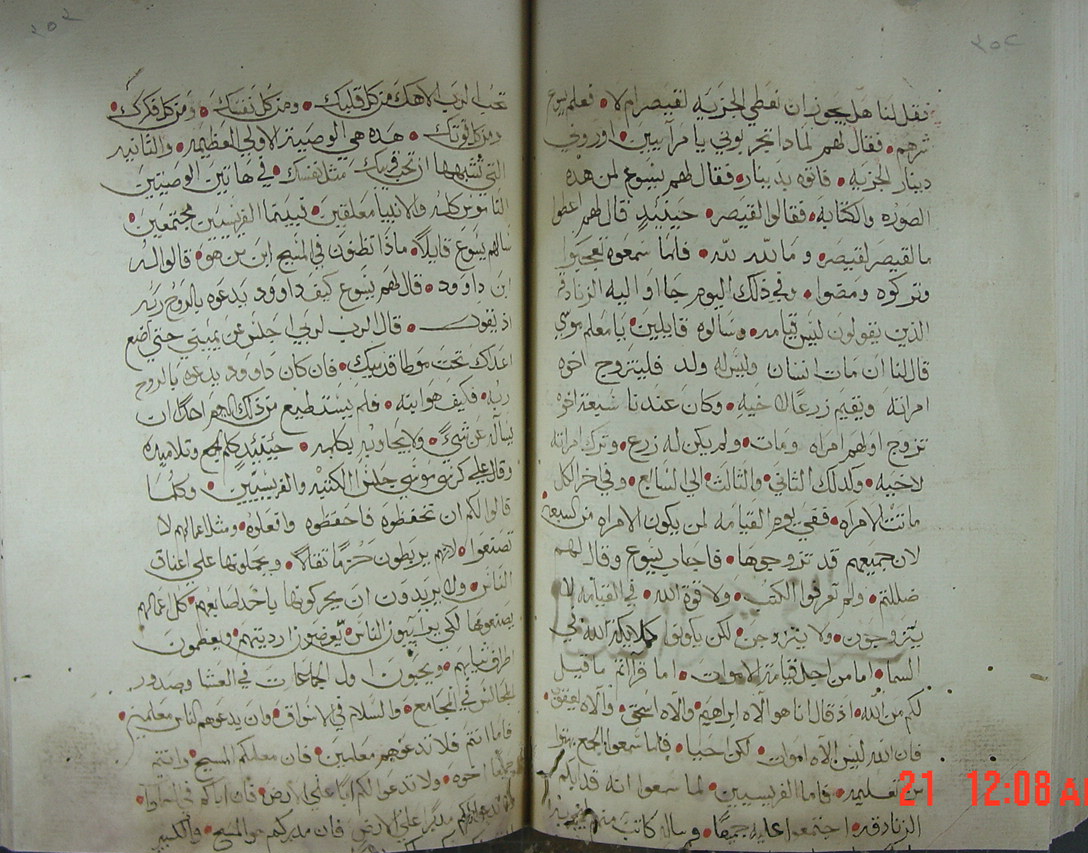 فقل لنا هل يجوز ان نعطي الجزيه لقيصر ام لا • فعلم يسوع
شرهم • فقال لهم لماذا تجربوني يا مرايين • اوروني
دينار الجزيه • فاتوه بدينار • فقال لهم يسوع لمن هذه
الصوره والكتابه • فقالوا لقيصر • حينيذ قال لهم اعطوا
ما لقيصر لقيصر • وما لله لله • فلما سمعوه تعجبوا
وتركوه ومضوا • وفي ذلك اليوم جاا وا اليه الزنادقه
الذين يقولون ليس قيامه • وسالوه قايلين • يا معلم موسي
قال لنا ان مات انسان وليس له ولد فليتزوج اخوه
امراته ويقيم زرعا لاخيه • وكان عندنا سبعة اخوه
تزوج اولهم امراه ومات • ولم يكن له زرع • وترك امراته
لاخيه • وكذلك الثاني • والثالث • الي السابع • وفي اخر الكل
ماتت الامراه • ففي يوم القيامه لمن يكون الامراه من السبعه
لان جميعهم قد تزوجوها • فاجاب يسوع وقال لهم
ضللتم • ولم تعرفوا الكتب • ولا قوة الله • في القيامه لا
يتزوجون • ولا يتزوجن • لكن يكونون كملايكة الله في
السما • اما من اجل قيامة الاموات • اما قراتم ما قيل
لكم من الله • اذ قال انا هو الاه ابراهيم • والاه اسحق • والاه يعقوب
فان الله ليس الاه اموات • لكن احيا • فلما سمعوا الجمع بهتوا
من تعليمه • فاما الفريسيين • لما سمعوا انه قد ابكم
الزنادقه • اجتمعوا عليه جميعا • وساله كاتب منهم
تحب الرب الاهك من كل قلبك • ومن كل نفسك • ومن كل فكرك •
ومن كل قوتك • هذه هي الوصية الاولي العظيمه • والثانيه
التي تشبهها ان تحب قريبك مثل نفسك • في هاتين الوصيتين
الناموس كله والانبيا معلقين • فبينما الفريسيين مجتمعين •
سالهم يسوع قايلا • ماذا تظنون في المسيح ابن من هو • قالوا له
ابن داوود • قال لهم يسوع كيف داوود يدعوه بالروح ربه
اذ يقول • قال الرب لربي اجلس عن يميني حتي اضع
اعداك تحت موطا قدميك • فان كان داوود يدعوه بالروح
ربه • فكيف هو ابنه • فلم يستطيع من ذلك اليوم احد ان
يساله عن شي • ولا يجاوبه بكلمه • حينيذ كلم الجمع وتلاميذه
وقال علي كرسي موسي جلس الكتبه والفريسيين • وكلما
قالوا لكم ان تحفظوه فاحفظوه وافعلوه • ومثل اعمالهم لا
تصنعوا • لانهم يربطون حزما ثقالا • ويحملونها علي اعناق
الناس • ولا يريدون ان يحركونها باحد اصابعهم • كل اعمالهم
يصنعونها لكي يراييون الناس • يعرضون ارديتهم • ويعظمون
اطراف ثيابهم • ويحبون اول الجماعات في العشا وصدور
المجالس في المجامع • والسلام في الاسواق • وان يدعوهم الناس معلمين •
فاما انتم فلا تدعوهم معلمين • فان معلمكم المسيح • وانتم
جميعا اخوه • ولا تدعوا لكم ابا علي الارض • فان اباكم في السماوات •
مدبرا علي الارض فان مدبركم هو المسيح • والكبير